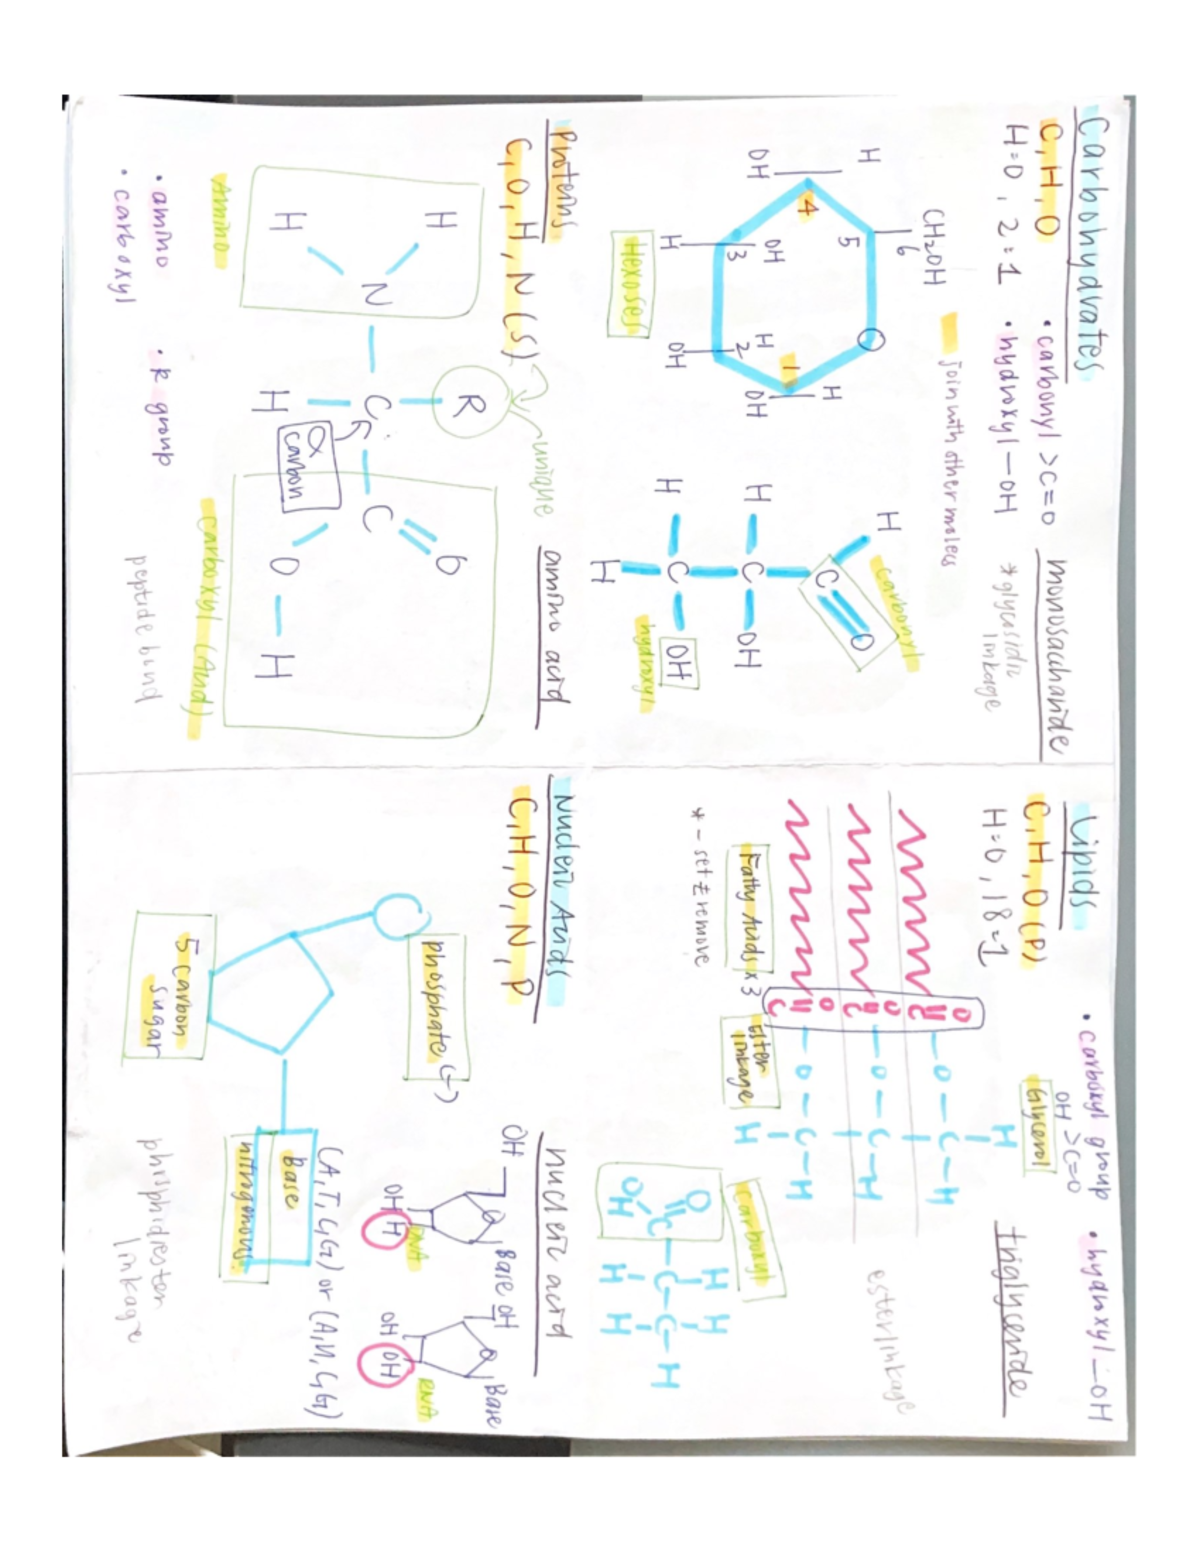 Carbohydrates
C, H, O
H=O, 2=1
• carbonyl >C=O
• hydroxyl —OH
monosaccharide
* glycosidic
linkage
join with other molecs
CH2OH
6
H
5
O
H
4
1
OH
OH
H
OH
3
2
H
OH
Hexoses
H
carbonyl
C
O
H
C
OH
H
C
OH
H
hydroxyl
Lipids
C, H, O (P)
H=O, 18=1
• carboxyl group
OH >C=O
• hydroxyl —OH
Glycerol
triglyceride
H
O
C
—O—C—H
O
C
—O—C—H
O
C
—O—C—H
H
Fatty Acids x3
Ester
linkage
ester linkage
carboxyl
O
C
OH
H
H
C
C
H
H
H
Proteins
C, O, H, N (S)
unique
amino acid
R
H
N
C
C
O
H
H
α
carbon
O
H
Amino
carboxyl (Acid)
• amino
• carboxyl
• R group
peptide bond
Nucleic Acids
C, H, O, N, P
nucleic acid
phosphate (-)
5 carbon
sugar
Base
nitrogenous
(A, T, C, G) or (A, U, C, G)
OH
O
Base
OH
H
DNA
OH
O
Base
OH
OH
RNA
linkage